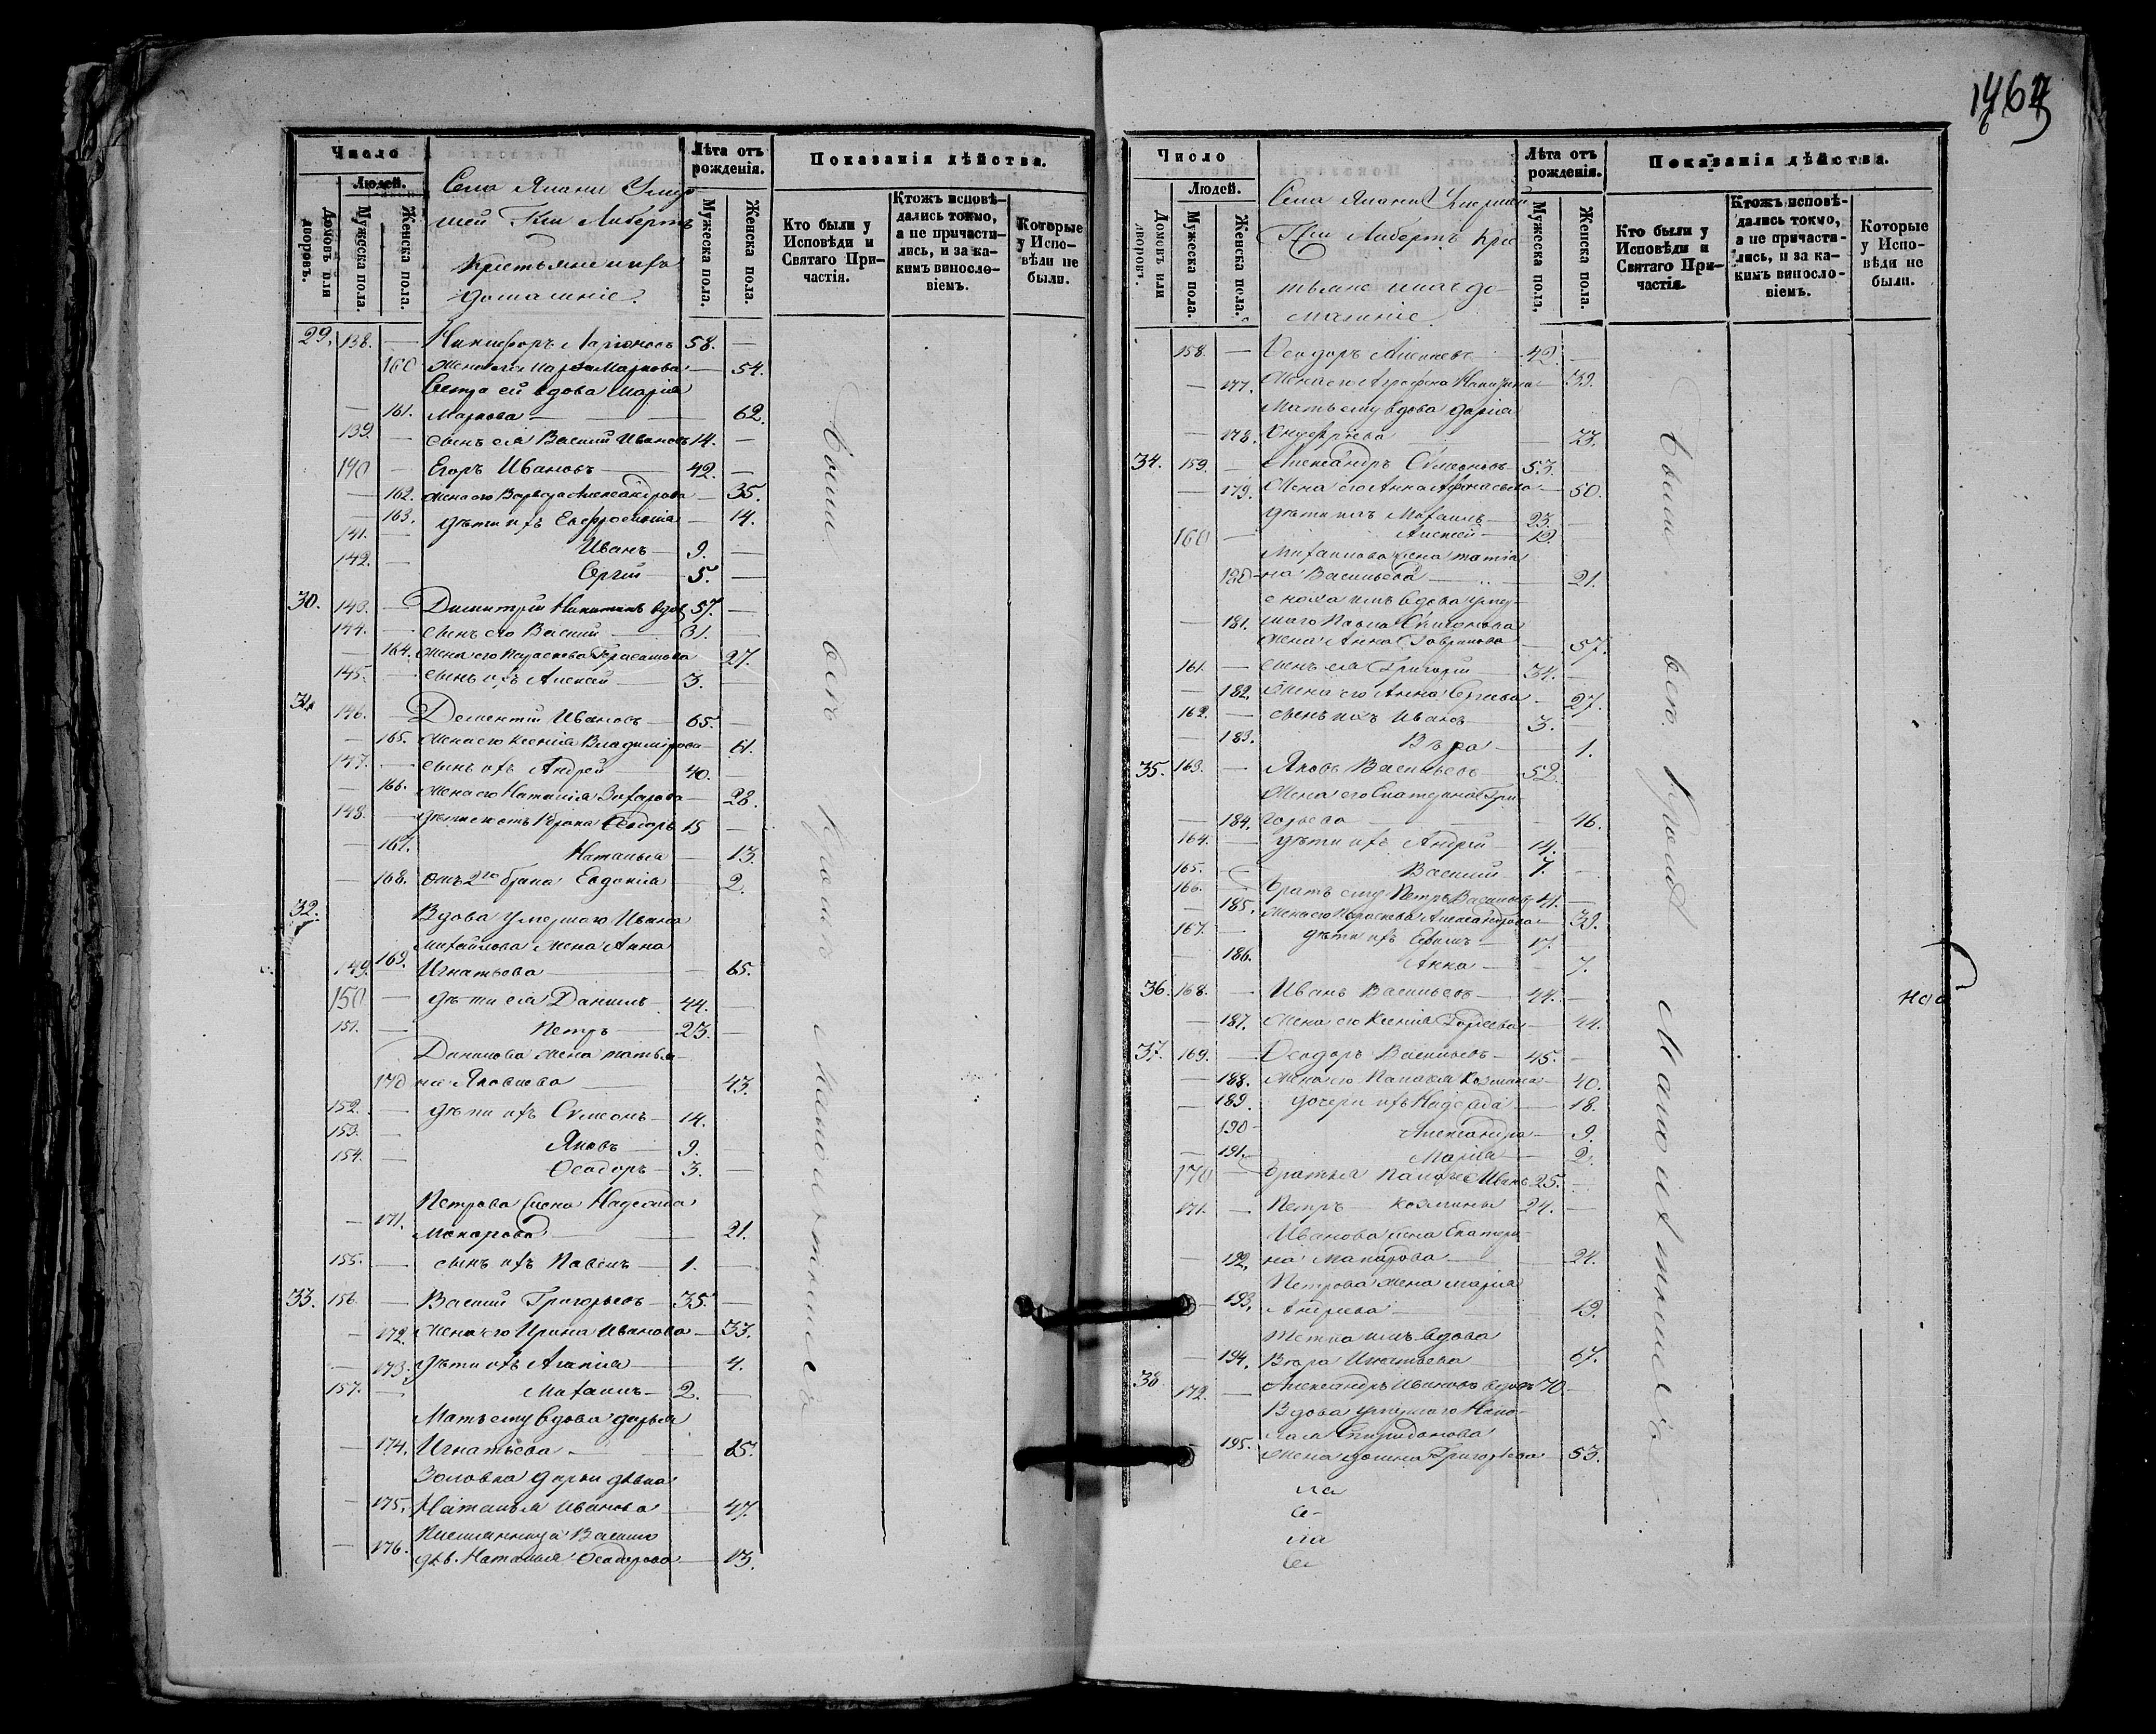 Число
Людей.
Домовъ или дворовъ.
Мужеска пола.
Женска пола.
Села
Кристьяне и ихъ
домашніе.
Лѣта отъ рожденія.
Мужеска пола.
Женска пола.
Показанія дѣйства.
Кто были у Исповѣди и Святаго Причастія.
Ктожъ исповѣдались токмо, а не причастились, и за какимъ винословіемъ.
Которые у Исповѣди не были.
29. 138. — Никифоръ Ларіоновъ 58. —
160 Жена его Марѳа Маркова — 54.
Сестра ей вдова Марія
— 161. Маркова — 62.
139. — сынъ ея Василій Ивановъ 14. —
140 — Егоръ Ивановъ 42. —
— 162. Жена его Варвара Александрова — 35.
— 163. дѣти ихъ Евфросинія — 14.
141. — Иванъ — 9. —
142. — Сергій — 5. —
30. 143. — Димитрій Никитинъ вдов 57. —
144. — сынъ его Василій 31. —
— 164. Жена его Параскева Герасимова 27.
145. — сынъ ихъ Алексей 3.
31. 146. — Дементій Ивановъ — 65. —
— 165. Жена его Ксенія Владимірова — 61.
147. — сынъ ихъ Андрей 40. —
— 166. Жена его Наталія Захарова — 28.
148. — дѣти его отъ 1 брака Ѳеодоръ 15 —
— 167. Наталья — 13.
— 168. отъ 2го брака Евдокія 2.
32. Вдова умершаго Ивана
Михайлова жена Анна
149. 169. Игнатьева — 65.
150 — дѣти ея Даніилъ 44. —
151. — Петръ 23. —
Данилова жена Татья-
170 на Яковлева 43.
152. — дѣти ихъ Сѵмеонъ 14.
153. — Яковъ 9.
154. — Ѳеодоръ 3. —
Петрова жена Надежда
— 171. Макарова 21.
155. — сынъ ихъ Павелъ 1. —
33. 156 — Василій Григорьевъ 35. —
— 172. Жена его Ирина Иванова — 33.
— 173. дѣти ихъ Агапія 4.
157. — Михаилъ 2. —
Мать ему вдова Дарья
— 174. Игнатьева — 65.
Золовка Дарьи дѣвка
— 175. Наталья Иванова 47.
Племянница Василію
— 176. дѣв. Наталья Ѳеодорова — 13.
были всѣ кромѣ малолѣтныхъ
Число
Людей.
Домовъ или дворовъ.
Мужеска пола.
Женска пола.
Села
Кре-
стьяне и ихъ до-
машніе.
Лѣта отъ рожденія.
Мужеска пола.
Женска пола.
Показанія дѣйства.
Кто были у Исповѣди и Святаго Причастія.
Ктожъ исповѣдались токмо, а не причастились, и за какимъ винословіемъ.
Которые у Исповѣди не были.
158. — Ѳеодоръ Алексеевъ 42. —
— 177. Жена его Агрофена — 39.
Мать ему вдова Дарія
— 178. — 73.
34. 159. — Александръ Сѵмеоновъ 53. —
— 179. Жена его Анна Афонасьева — 50.
дѣти ихъ Михаилъ 23. —
160 — Алексей — 12.
Михаилова жена Татіа
180 на Васильева 21.
сноха имъ вдова умер-
— 181. шаго Павла
жена Анна Гаврилова — 57.
161. — сынъ ея Григорій 34. —
— 182. Жена его Анна Сергеева — 27.
162. — сынъ ихъ Иванъ 3. —
— 183. Вѣра — 1.
35. 163. — Яковъ Васильевъ 52.
Жена его Екатерина Гри-
— 184. горьева — 46.
164. — дѣти ихъ Андрей 14. —
165. — Василій 7. —
166. — братъ ему Петръ Васильевъ 41. —
— 185. Жена его Параскева Александрова — 39.
167. — дѣти ихъ Ефимъ 17.
— 186. Анна — 7.
36. 168. — Иванъ Васильевъ 44. —
— 187. Жена его Ксенія — 44.
37. 169. — Ѳеодоръ Васильевъ 45. —
— 188. Жена его Пелагея Козмина — 40.
— 189. дочери ихъ Надежда — 18.
190 — Александра — 9.
— 191. Марія — 2.
170 — братья Иванъ 25. —
171. — Петръ Козмины 24. —
Иванова жена Екатери-
— 192. на Макарова 24.
Петрова жена Марія
— 193. Андреева 19.
Тетка имъ вдова
— 194. Игнатьева 67.
38 172. — Александръ Ивановъ вдовъ 70 —
Вдова умершаго Нико-
195. лая Спиридонова
жена Григорьева 53.
были всѣ кромѣ малолѣтныхъ